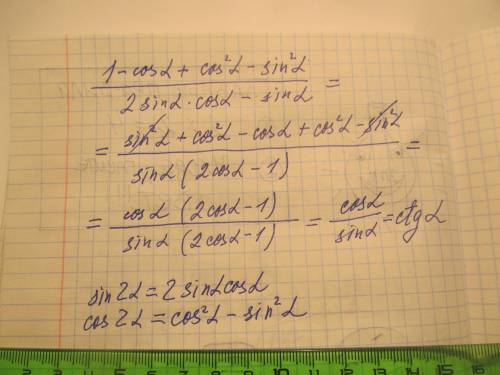 (1 - cosα + cos²α - sin²α) / (2 sinα · cosα - sinα) =
= (sin²α + cos²α - cosα + cos²α - sin²α) / (sinα (2cosα - 1)) =
= (cosα (2cosα - 1)) / (sinα (2cosα - 1)) = cosα / sinα = ctgα
sin2α = 2sinαcosα
cos2α = cos²α - sin²α
2 3 4 5 6 7 8 9 10 11 12 13 14 15 16